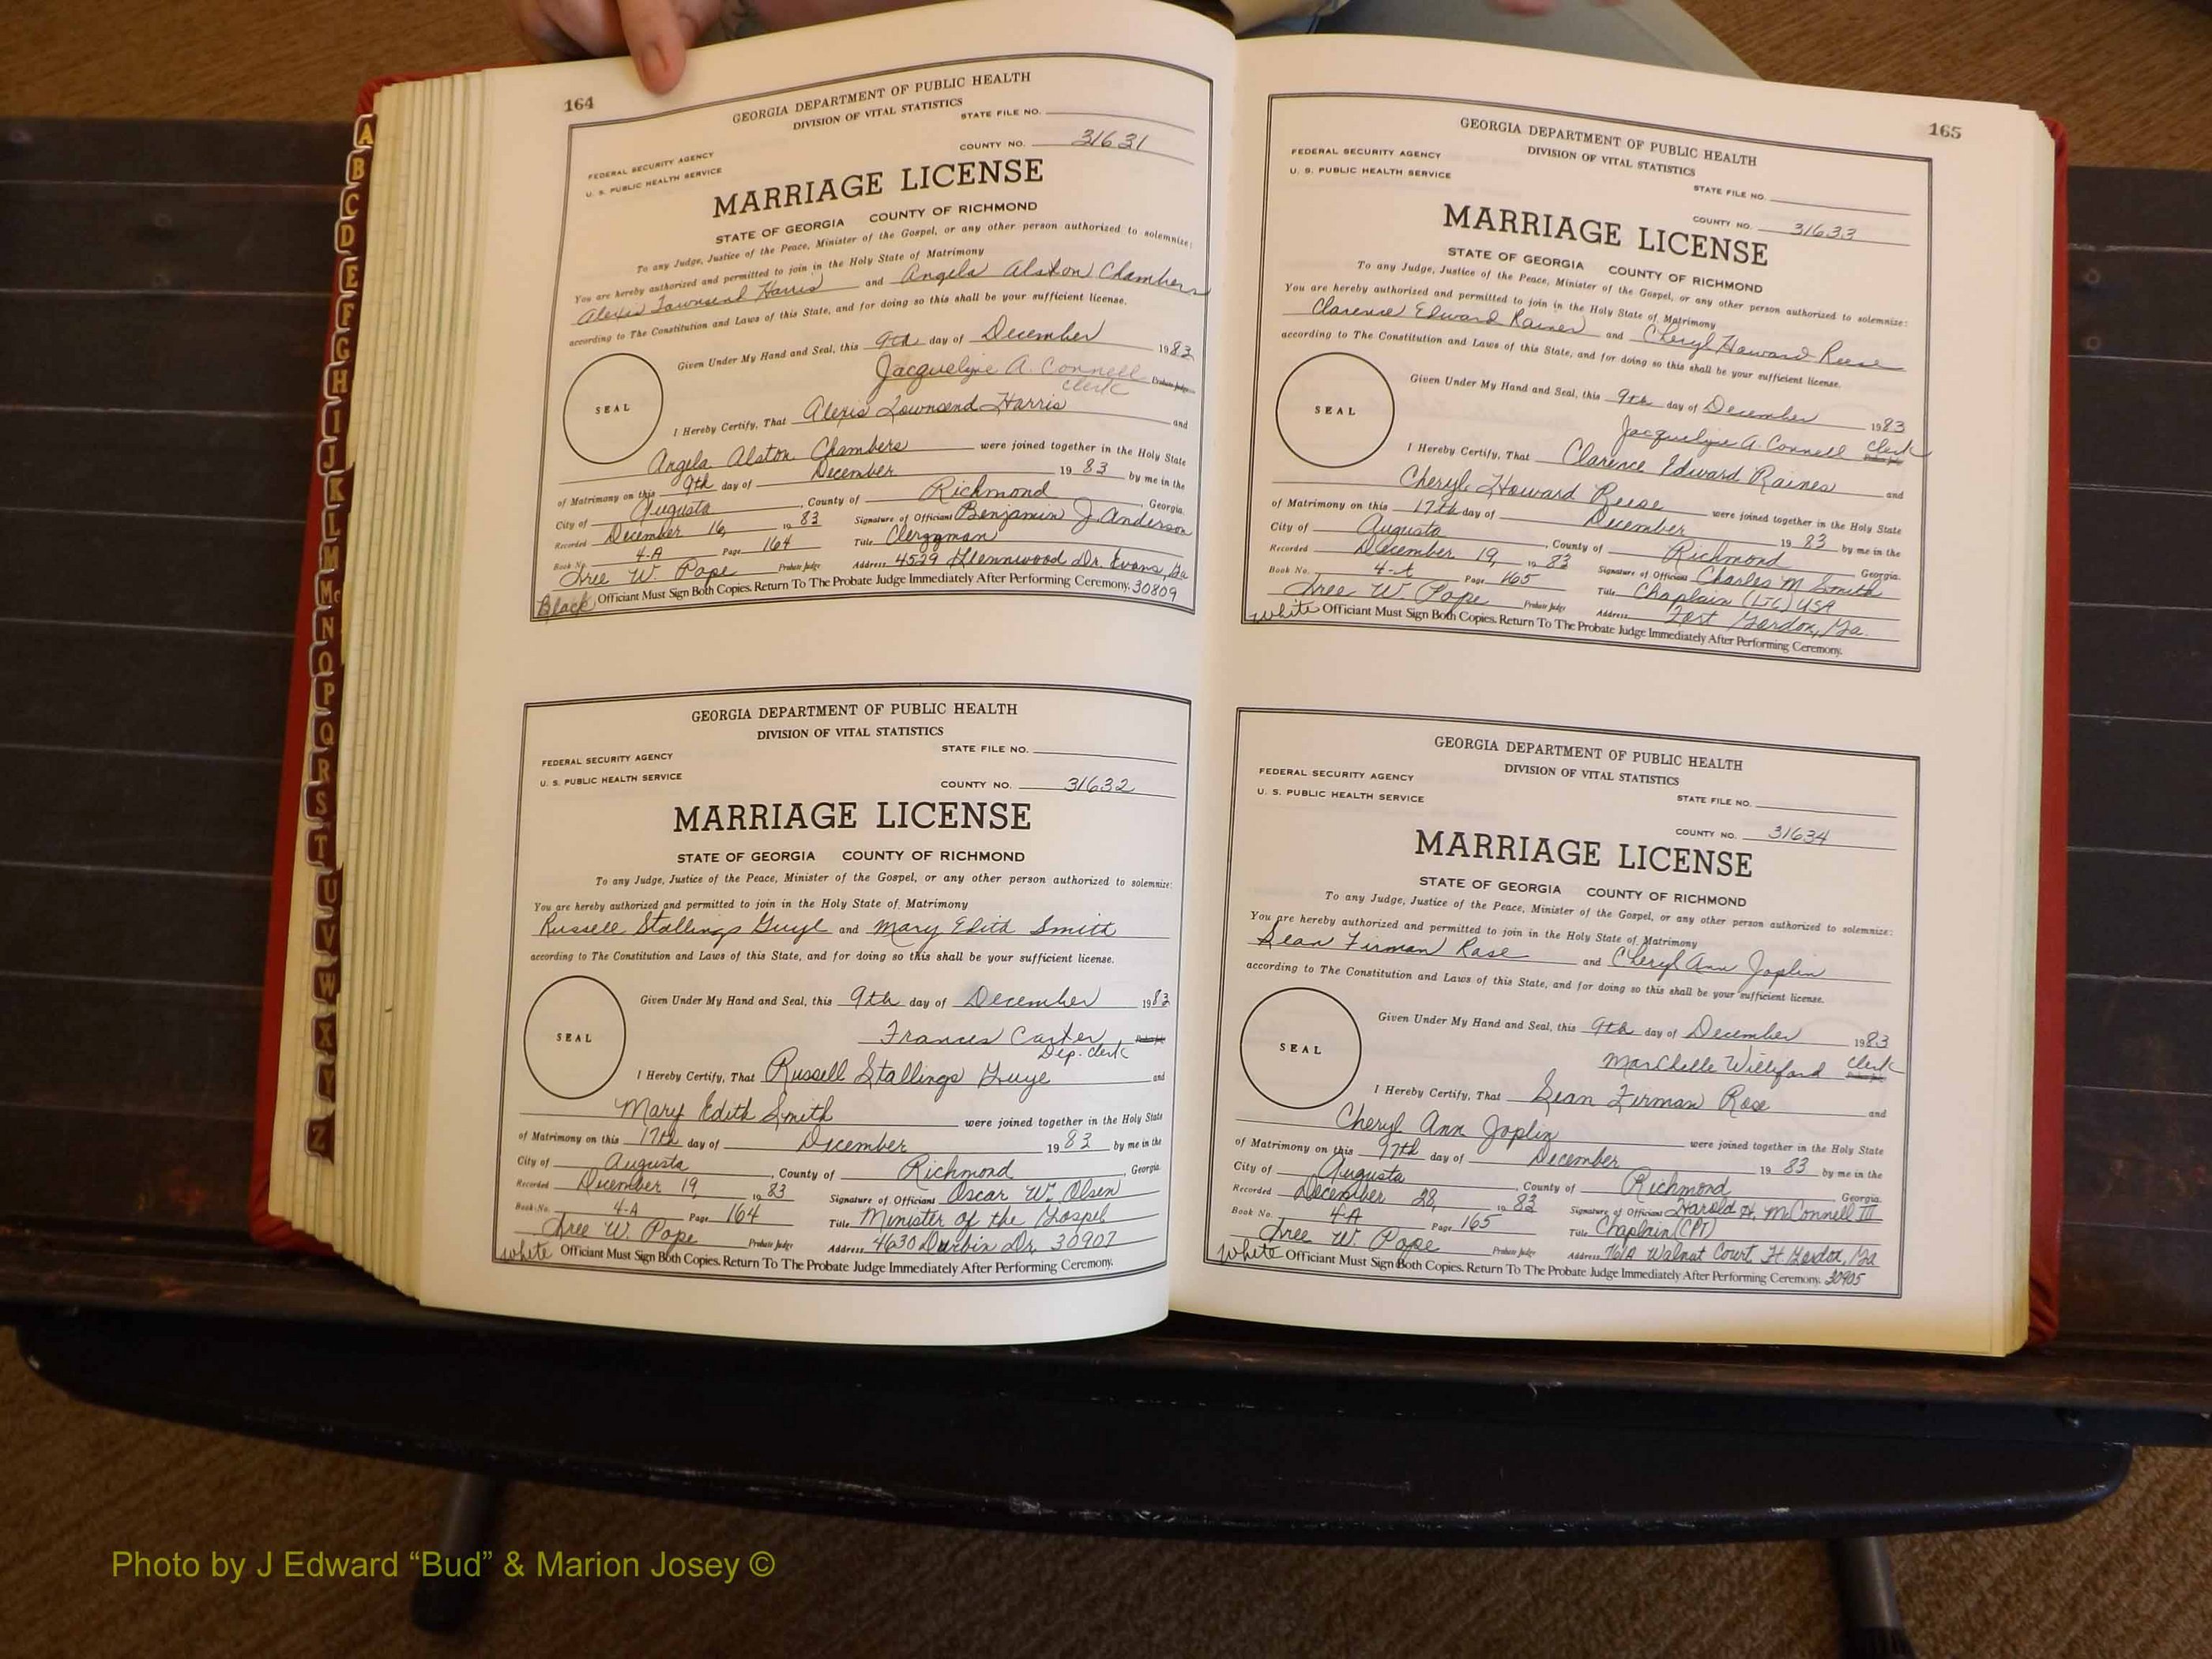 164
GEORGIA DEPARTMENT OF PUBLIC HEALTH
DIVISION OF VITAL STATISTICS
STATE FILE NO.
COUNTY NO. 31631
FEDERAL SECURITY AGENCY
U. S. PUBLIC HEALTH SERVICE
MARRIAGE LICENSE
STATE OF GEORGIA COUNTY OF RICHMOND
To any Judge, Justice of the Peace, Minister of the Gospel, or any other person authorized to solemnize:
You are hereby authorized and permitted to join in the Holy State of Matrimony
Alexis Townsend Harris and Angela Alston Chambers
according to The Constitution and Laws of this State, and for doing so this shall be your sufficient license.
Given Under My Hand and Seal, this 9th day of December 1983
Jacquelyne A. Connell Probate Judge
Clerk
SEAL
I Hereby Certify, That Alexis Townsend Harris and
Angela Alston Chambers were joined together in the Holy State
of Matrimony on this 9th day of December 1983 by me in the
City of Augusta, County of Richmond, Georgia.
Recorded December 16, 1983 Signature of Officiant Benjamin J. Anderson
Book No. 4-A Page 164 Title Clergyman
Tree W. Pope Probate Judge Address 4529 Glennwood Dr. Evans, Ga
Black Officiant Must Sign Both Copies. Return To The Probate Judge Immediately After Performing Ceremony. 30809
GEORGIA DEPARTMENT OF PUBLIC HEALTH
DIVISION OF VITAL STATISTICS
STATE FILE NO.
FEDERAL SECURITY AGENCY
U. S. PUBLIC HEALTH SERVICE
COUNTY NO. 31632
MARRIAGE LICENSE
STATE OF GEORGIA COUNTY OF RICHMOND
To any Judge, Justice of the Peace, Minister of the Gospel, or any other person authorized to solemnize:
You are hereby authorized and permitted to join in the Holy State of Matrimony
Russell Stallings Guye and Mary Edith Smith
according to The Constitution and Laws of this State, and for doing so this shall be your sufficient license.
Given Under My Hand and Seal, this 9th day of December 1983
Frances Carter, Probate Judge
Dep. Clerk
SEAL
I Hereby Certify, That Russell Stallings Guye and
Mary Edith Smith were joined together in the Holy State
of Matrimony on this 17th day of December 1983 by me in the
City of Augusta, County of Richmond, Georgia.
Recorded December 19, 1983 Signature of Officiant Oscar W. Olsen
Book No. 4-A Page 164 Title Minister of the Gospel
Tree W. Pope Probate Judge Address 4630 Durbin Dr. 30907
White Officiant Must Sign Both Copies. Return To The Probate Judge Immediately After Performing Ceremony.
165
GEORGIA DEPARTMENT OF PUBLIC HEALTH
DIVISION OF VITAL STATISTICS
FEDERAL SECURITY AGENCY
U. S. PUBLIC HEALTH SERVICE
STATE FILE NO.
COUNTY NO. 31633
MARRIAGE LICENSE
STATE OF GEORGIA COUNTY OF RICHMOND
To any Judge, Justice of the Peace, Minister of the Gospel, or any other person authorized to solemnize:
You are hereby authorized and permitted to join in the Holy State of Matrimony
Clarence Edward Raines and Cheryl Howard Reese
according to The Constitution and Laws of this State, and for doing so this shall be your sufficient license.
Given Under My Hand and Seal, this 9th day of December 1983
Jacquelyne A. Connell Clerk
Probate Judge
SEAL
I Hereby Certify, That Clarence Edward Raines and
Cheryl Howard Reese were joined together in the Holy State
of Matrimony on this 17th day of December 1983 by me in the
City of Augusta, County of Richmond, Georgia.
Recorded December 19, 1983 Signature of Officiant Charles M Smith
Book No. 4-A Page 165 Title Chaplain (LTC) USA
Tree W. Pope Probate Judge Address Fort Gordon, Ga.
White Officiant Must Sign Both Copies. Return To The Probate Judge Immediately After Performing Ceremony.
GEORGIA DEPARTMENT OF PUBLIC HEALTH
DIVISION OF VITAL STATISTICS
FEDERAL SECURITY AGENCY
U. S. PUBLIC HEALTH SERVICE
STATE FILE NO.
COUNTY NO. 31634
MARRIAGE LICENSE
STATE OF GEORGIA COUNTY OF RICHMOND
To any Judge, Justice of the Peace, Minister of the Gospel, or any other person authorized to solemnize:
You are hereby authorized and permitted to join in the Holy State of Matrimony
Sean Firman Rose and Cheryl Ann Joplin
according to The Constitution and Laws of this State, and for doing so this shall be your sufficient license.
Given Under My Hand and Seal, this 9th day of December 1983
Marchelle Williford Clerk
Probate Judge
SEAL
I Hereby Certify, That Sean Firman Rose and
Cheryl Ann Joplin were joined together in the Holy State
of Matrimony on this 17th day of December 1983 by me in the
City of Augusta, County of Richmond, Georgia.
Recorded December 28, 1983 Signature of Officiant Harold H. McConnell III
Book No. 4-A Page 165 Title Chaplain (CPT)
Tree W. Pope Probate Judge Address Walnut Court, Ft Gordon, Ga
White Officiant Must Sign Both Copies. Return To The Probate Judge Immediately After Performing Ceremony. 30905
A
B
C
D
E
F
G
H
I
J
K
L
M
Mc
N
O
P
Q
R
S
T
U
V
W
X
Y
Z
Photo by J Edward “Bud” & Marion Josey ©